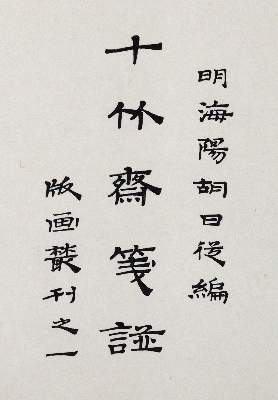 明海陽胡曰从編
十竹齋箋譜
版画叢刊之一